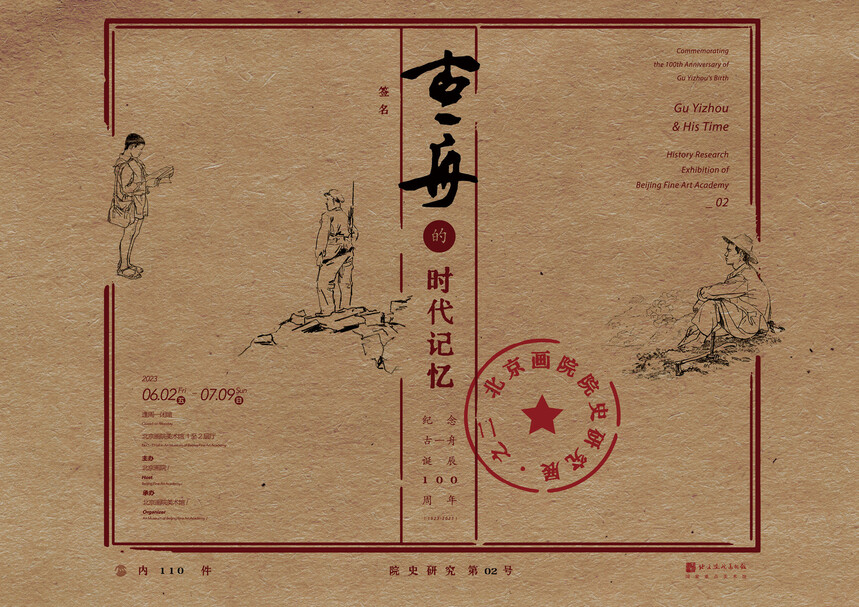 签名
古一舟
的
时代记忆
纪念
古一舟
诞辰
100
周年
(1923-2023)
Commemorating
the 100th Anniversary of
Gu Yizhou's Birth
Gu Yizhou
& His Time
History Research
Exhibition of
Beijing Fine Art Academy
_ 02
2023
06.02 Fri 五 - 07.09 Sun 日
逢周一闭馆
北京画院美术馆 1 至 2 层厅
主办
北京画院/
Host
承办
北京画院美术馆/
Organizer
北京画院院史研究展
之二
内 110 件
院史研究 第 02 号